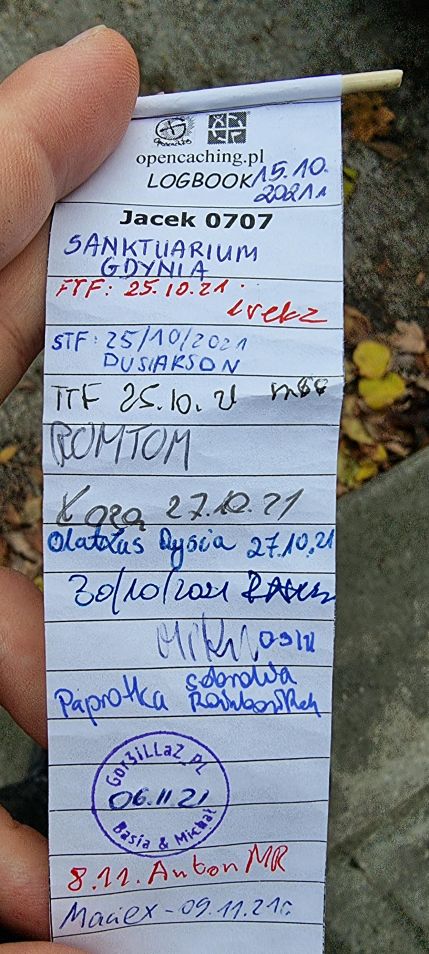 opencaching.pl
LOGBOOK 15.10.
2021r
Jacek 0707
SANKTUARIUM
GDYNIA
FTF: 25.10.21
STF: 25/10/2021
DUSIAKSON
TTF 25.10.21
ROMTOM
27.10.21
Dysia 27.10.21
30/10/2021
Paprotka
Gor3iLLaZ.PL
06.11.21
Basia & Michał
8.11. Anton MR
Maciex - 09.11.21r.